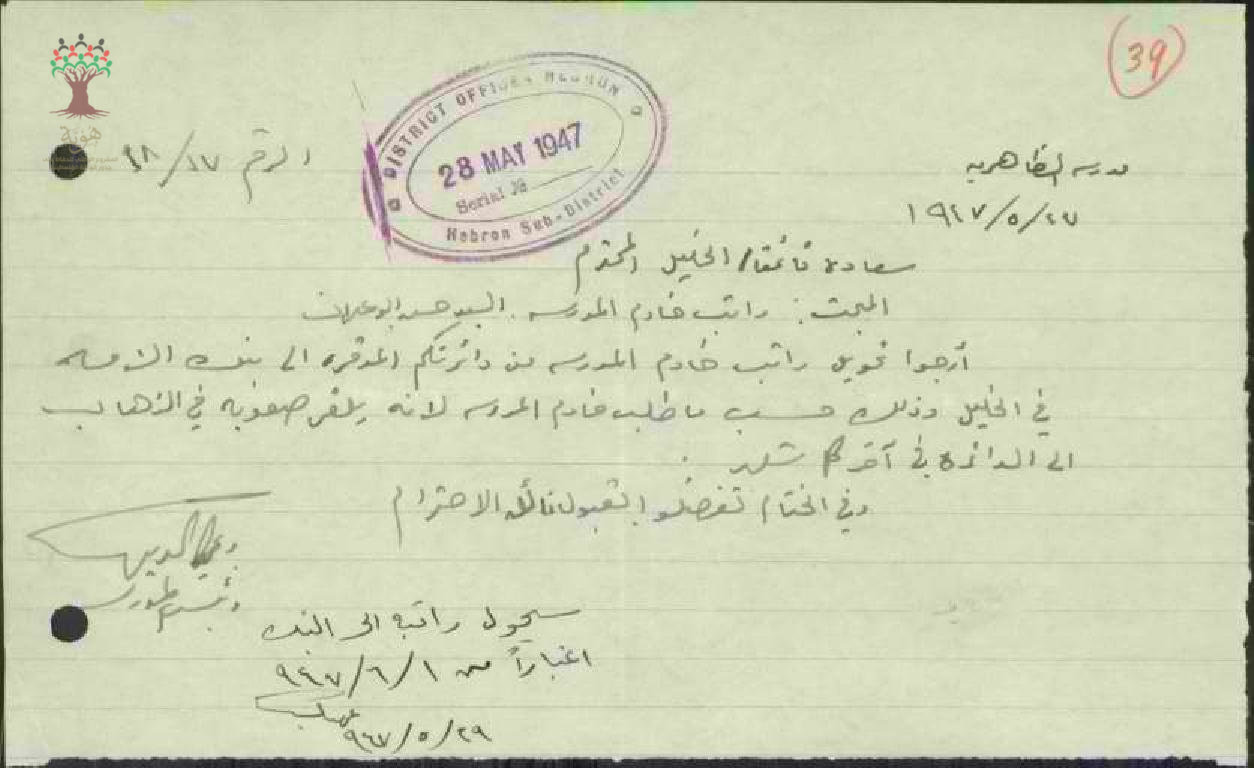 39
هوية
DISTRICT OFFICE, HEBRON
28 MAY 1947
Serial №
Hebron Sub-District
الرقم ٩٨/١٧
مدرسه الظاهريه
١٩٤٧/٥/٢٧
سعادة قائمقام الخليل المحترم
المبحث: راتب خادم المدرسه. السيد
أرجوا تحويل راتب خادم المدرسه من دائرتكم الموقره الى بنك الامه
في الخليل وذلك حسب ما طلب خادم المدرسه لانه يلقى صعوبه في الذهاب
الى الدائرة في آخر كل شهر.
وفي الختام تفضلوا بقبول فائق الاحترام
سيحول راتبه الى البنك
اعتباراً من ٩٤٧/٦/١
٩٤٧/٥/٢٩